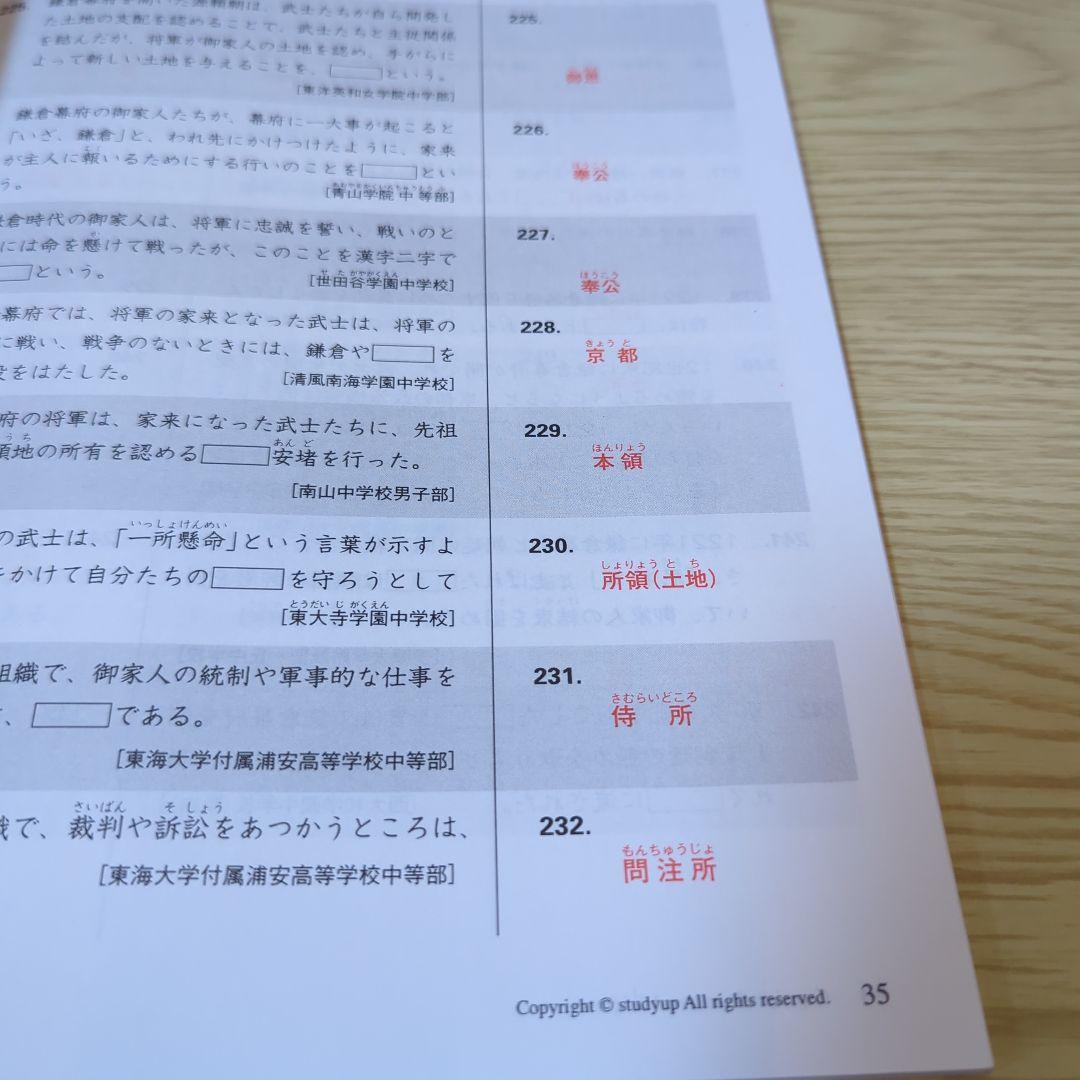 225. 鎌倉幕府を開いた源頼朝は、武士たちが自ら開発し
た土地の支配を認めることで、武士たちと主従関係
を結んだが、将軍が御家人の土地を認め、手がらに
よって新しい土地を与えることを、 という。
[東洋英和女学院中学部]
225.
鎌倉幕府の御家人たちが、幕府に一大事が起こると
「いざ、鎌倉」と、われ先にかけつけたように、家来
が主人に報いるためにする行いのことを とい
う。
[青山学院中等部]
226.
ほうこう
奉公
倉時代の御家人は、将軍に忠誠を誓い、戦いのと
には命を懸けて戦ったが、このことを漢字二字で
という。
せたがやがくえん
[世田谷学園中学校]
227.
ほうこう
奉公
幕府では、将軍の家来となった武士は、将軍の
に戦い、戦争のないときには、鎌倉や を
をはたした。
[清風南海学園中学校]
228.
きょうと
京都
府の将軍は、家来になった武士たちに、先祖
うち あんど
領地の所有を認める 安堵を行った。
[南山中学校男子部]
229.
ほんりょう
本領
いっしょけんめい
の武士は、「一所懸命」という言葉が示すよ
をかけて自分たちの を守ろうとして
とうだいじがくえん
[東大寺学園中学校]
230.
しょりょう とち
所領(土地)
組織で、御家人の統制や軍事的な仕事を
、 である。
[東海大学付属浦安高等学校中等部]
231.
さむらいどころ
侍所
さいばん そしょう
で、裁判や訴訟をあつかうところは、
[東海大学付属浦安高等学校中等部]
232.
もんちゅうじょ
問注所
Copyright © studyup All rights reserved. 35